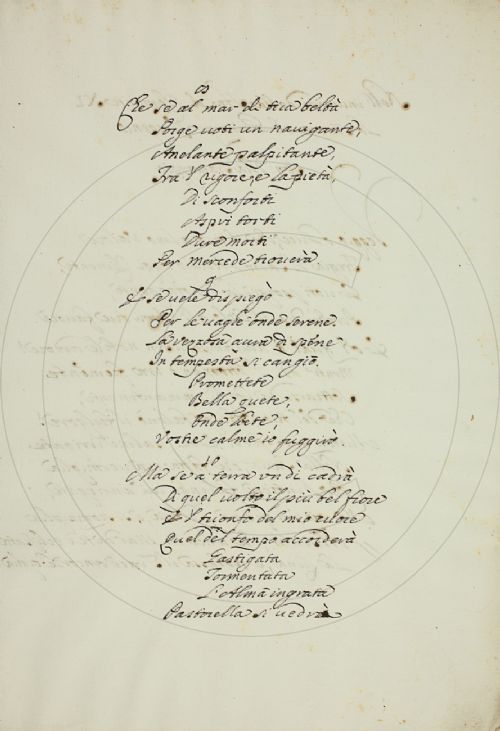 8
Che se al mar di tua beltà
Porge voti un navigante,
Anelante palpitante,
Fra 'l rigore, e la pietà,
Di sconforti
Aspri torti
Dure morti
Per mercede troverà.
9
E se vele dispiegò
Per le vaghe onde serene.
La vezzosa aura di spene
In tempesta si cangiò.
Promettete
Bella quete,
Onde liete,
Vostre calme io fuggirò.
10
Ma se a terra un dì cadrà
Di quel volto il più bel fiore
E 'l trionfo del mio cuore
Quel del tempo accorderà
Gastigata
Tormentata
L'Alma ingrata
Pastorella si vedrà